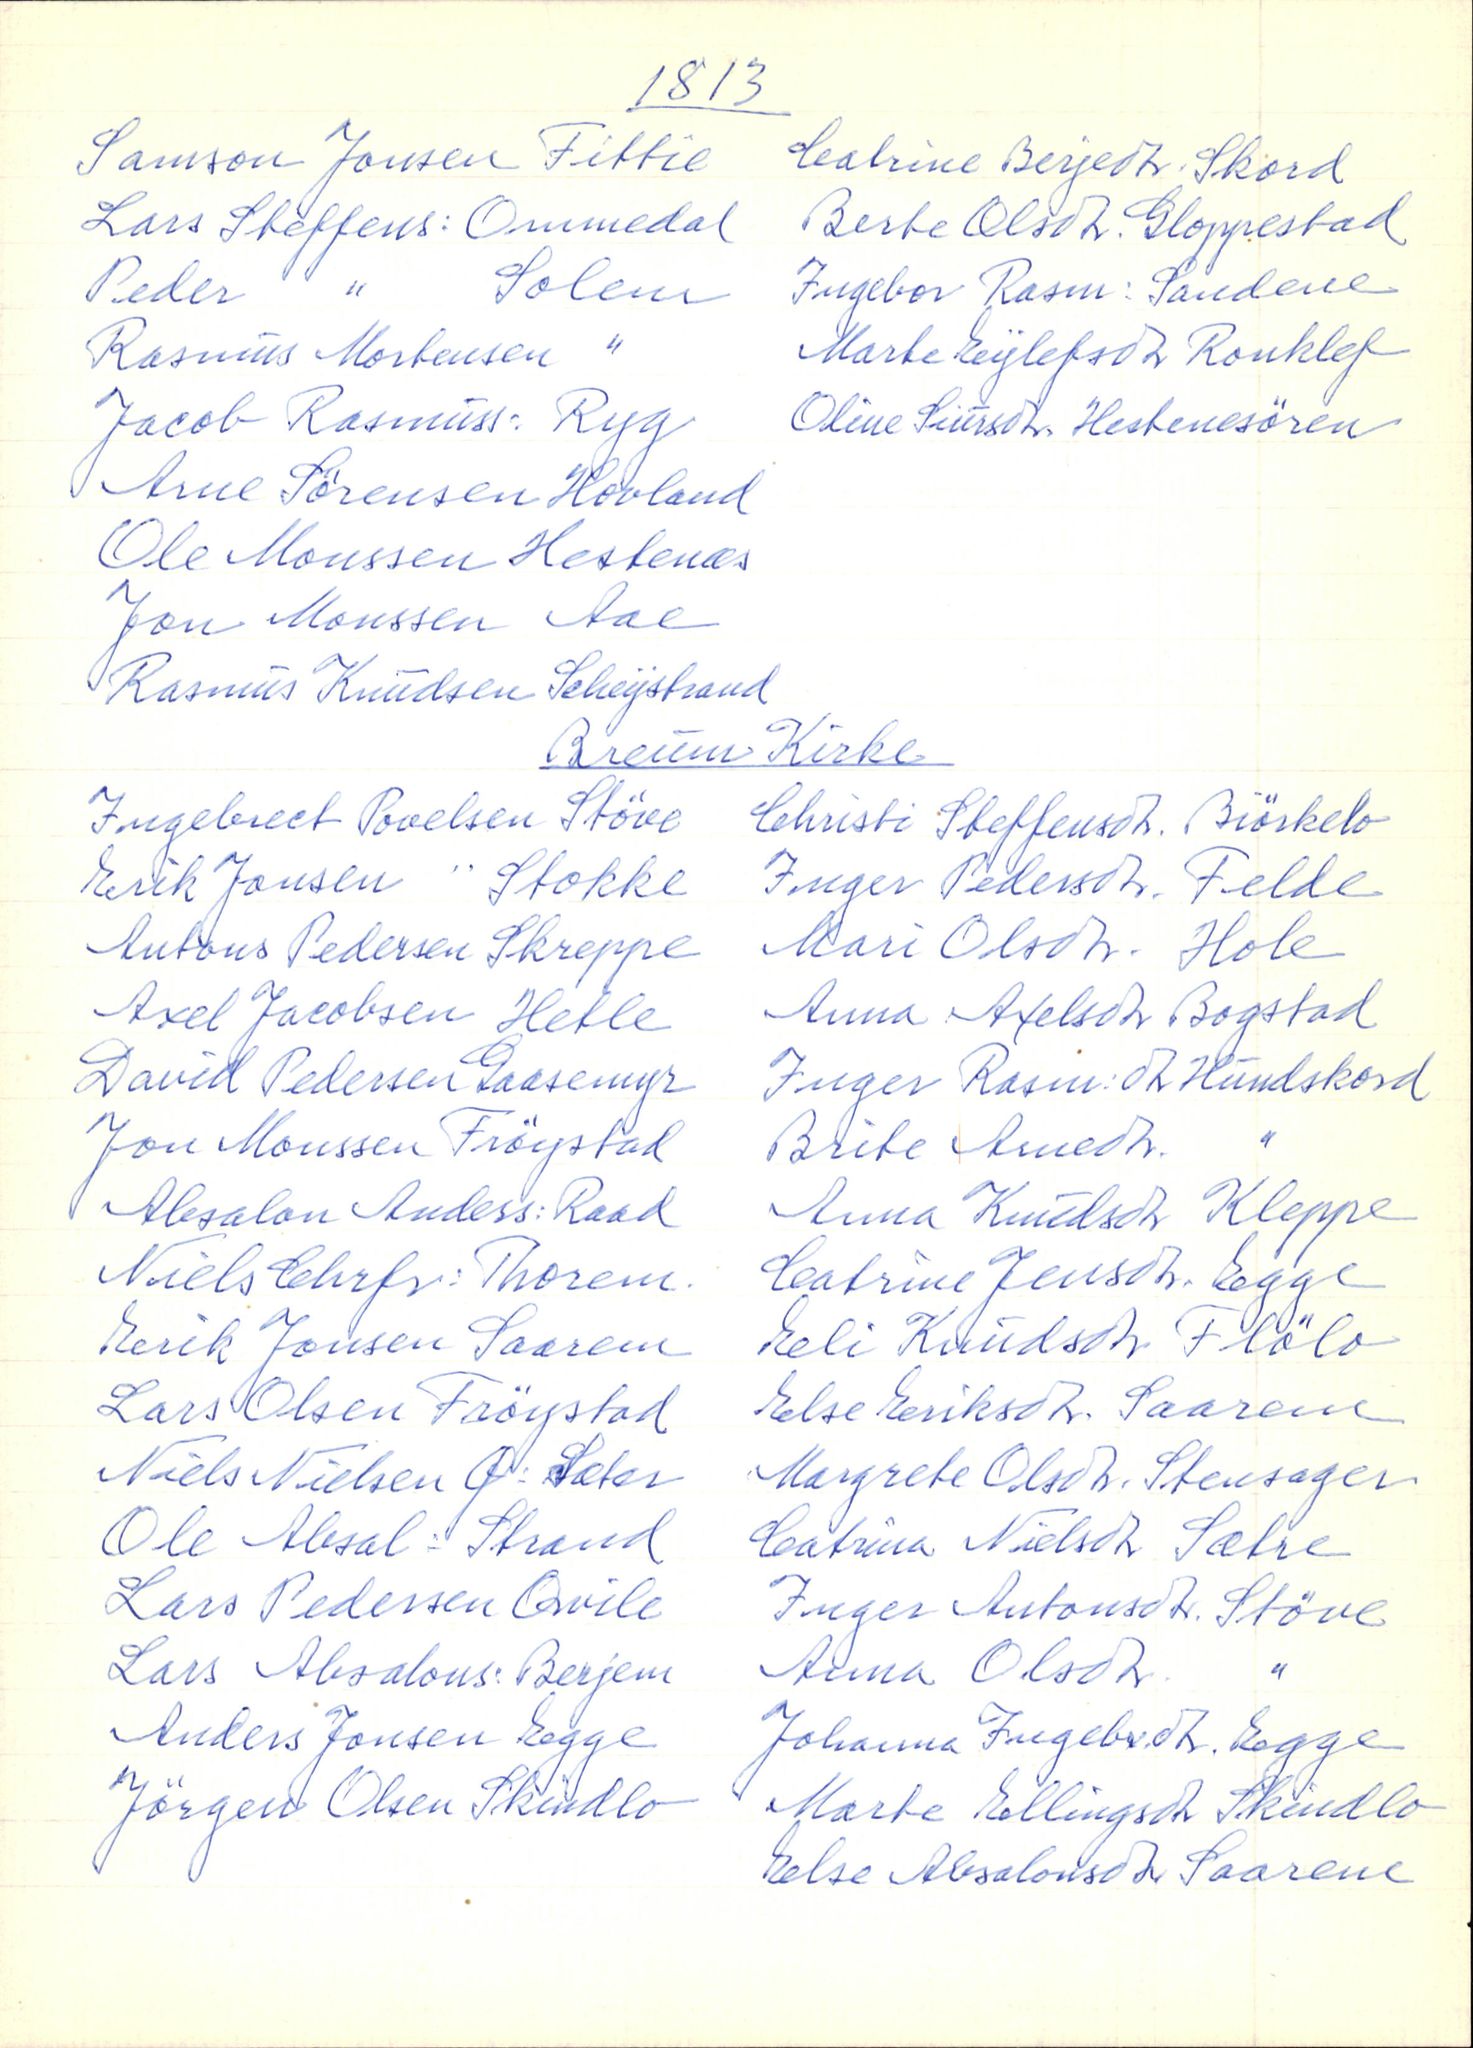 1813
Samson Jonsen Fittie
Lars Steffens: Ommedal
Peder " Solem
Rasmus Mortensen "
Jacob Rasmuss: Ryg
Arne Sörensen Hovland
Ole Monssen Hestenæs
Jon Monssen Aae
Rasmus Knudsen Scheijstrand
Catrine Berjedtr. Skord
Berte Olsdtr. Gloppestad
Ingebor Rasm: Sandene
Marte Eijlefsdtr Ronklef
Oline Siursdtr. Hestenesören
Breum Kirke
Ingebrect Povelsen Stöve
Erik Jonsen " Stokke
Antons Pedersen Skreppe
Axel Jacobsen Hetle
David Pedersen Gaasemyr
Jon Monssen Fröystad
Absalon Anders: Raad
Niels Chrfr: Thorem.
Erik Jonsen Saarem
Lars Olsen Fröystad
Niels Nielsen Q: Sæter
Ole Absal: Strand
Lars Pedersen Qvile
Lars Absalons: Berjem
Anders Jonsen Egge
Jörgen Olsen Skindlo
Christi Steffensdtr. Biörkelo
Inger Pedersdtr. Felde
Mari Olsdtr. Hole
Anna Axelsdtr Bogstad
Inger Rasm: dtr Hundskord
Brite Arnedtr. "
Anna Knudsdtr Kleppe
Catrine Jensdtr. Egge
Eli Knudsdtr Flölo
Else Eriksdtr. Saarem
Margrete Olsdtr. Stensager
Catrina Nielsdtr Sætre
Inger Antonsdtr. Stöve
Anna Olsdtr. "
Johanna Ingebr.dtr. Egge
Marte Ellingsdtr Skindlo
Else Absalonsdtr Saarem